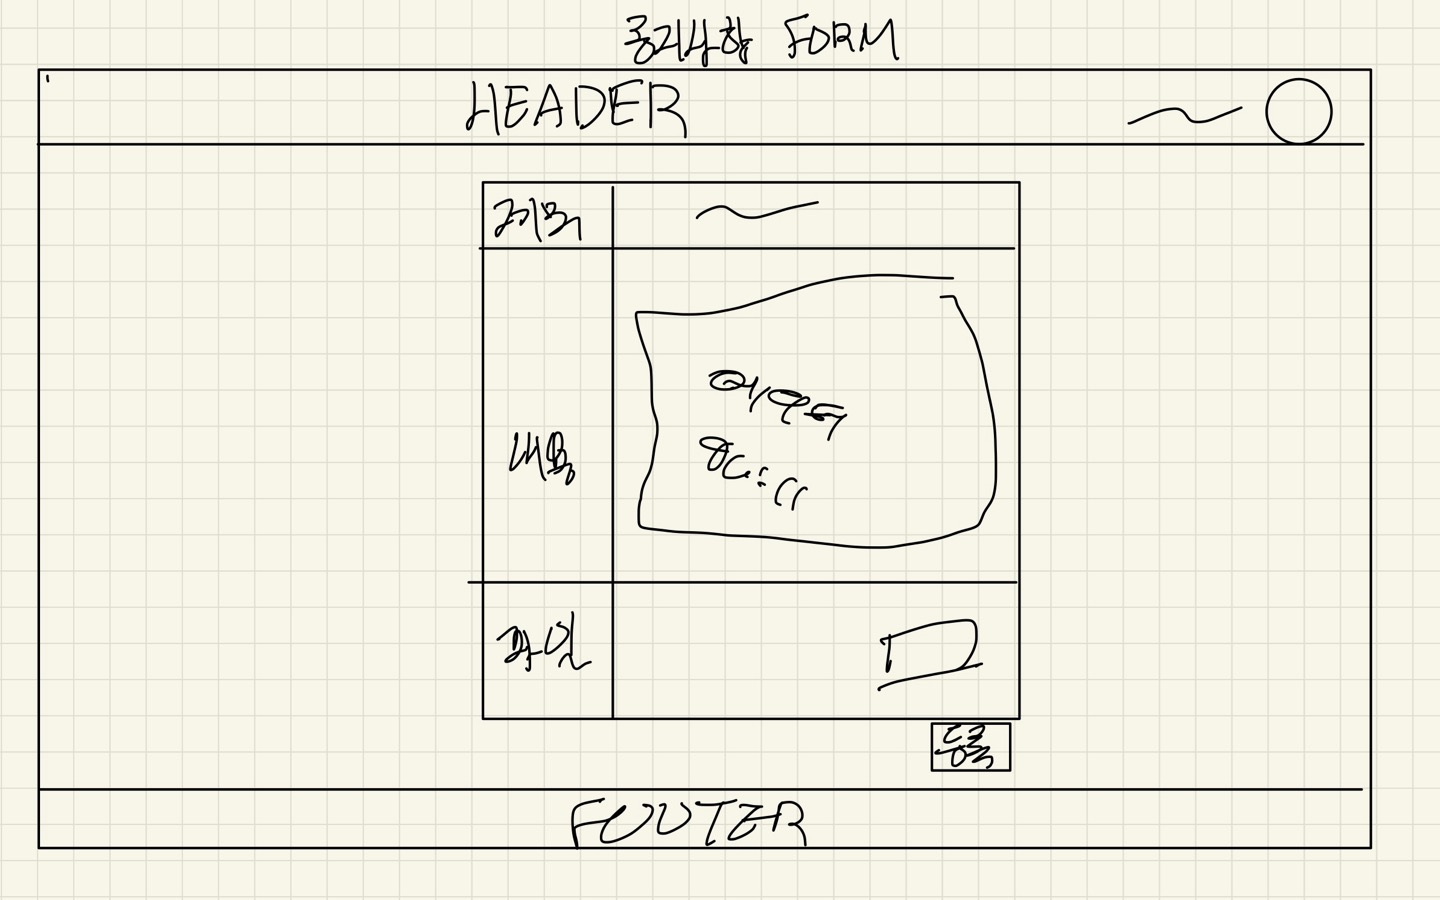 공지사항 FORM
HEADER
제목
내용
파일
등록
FOOTER